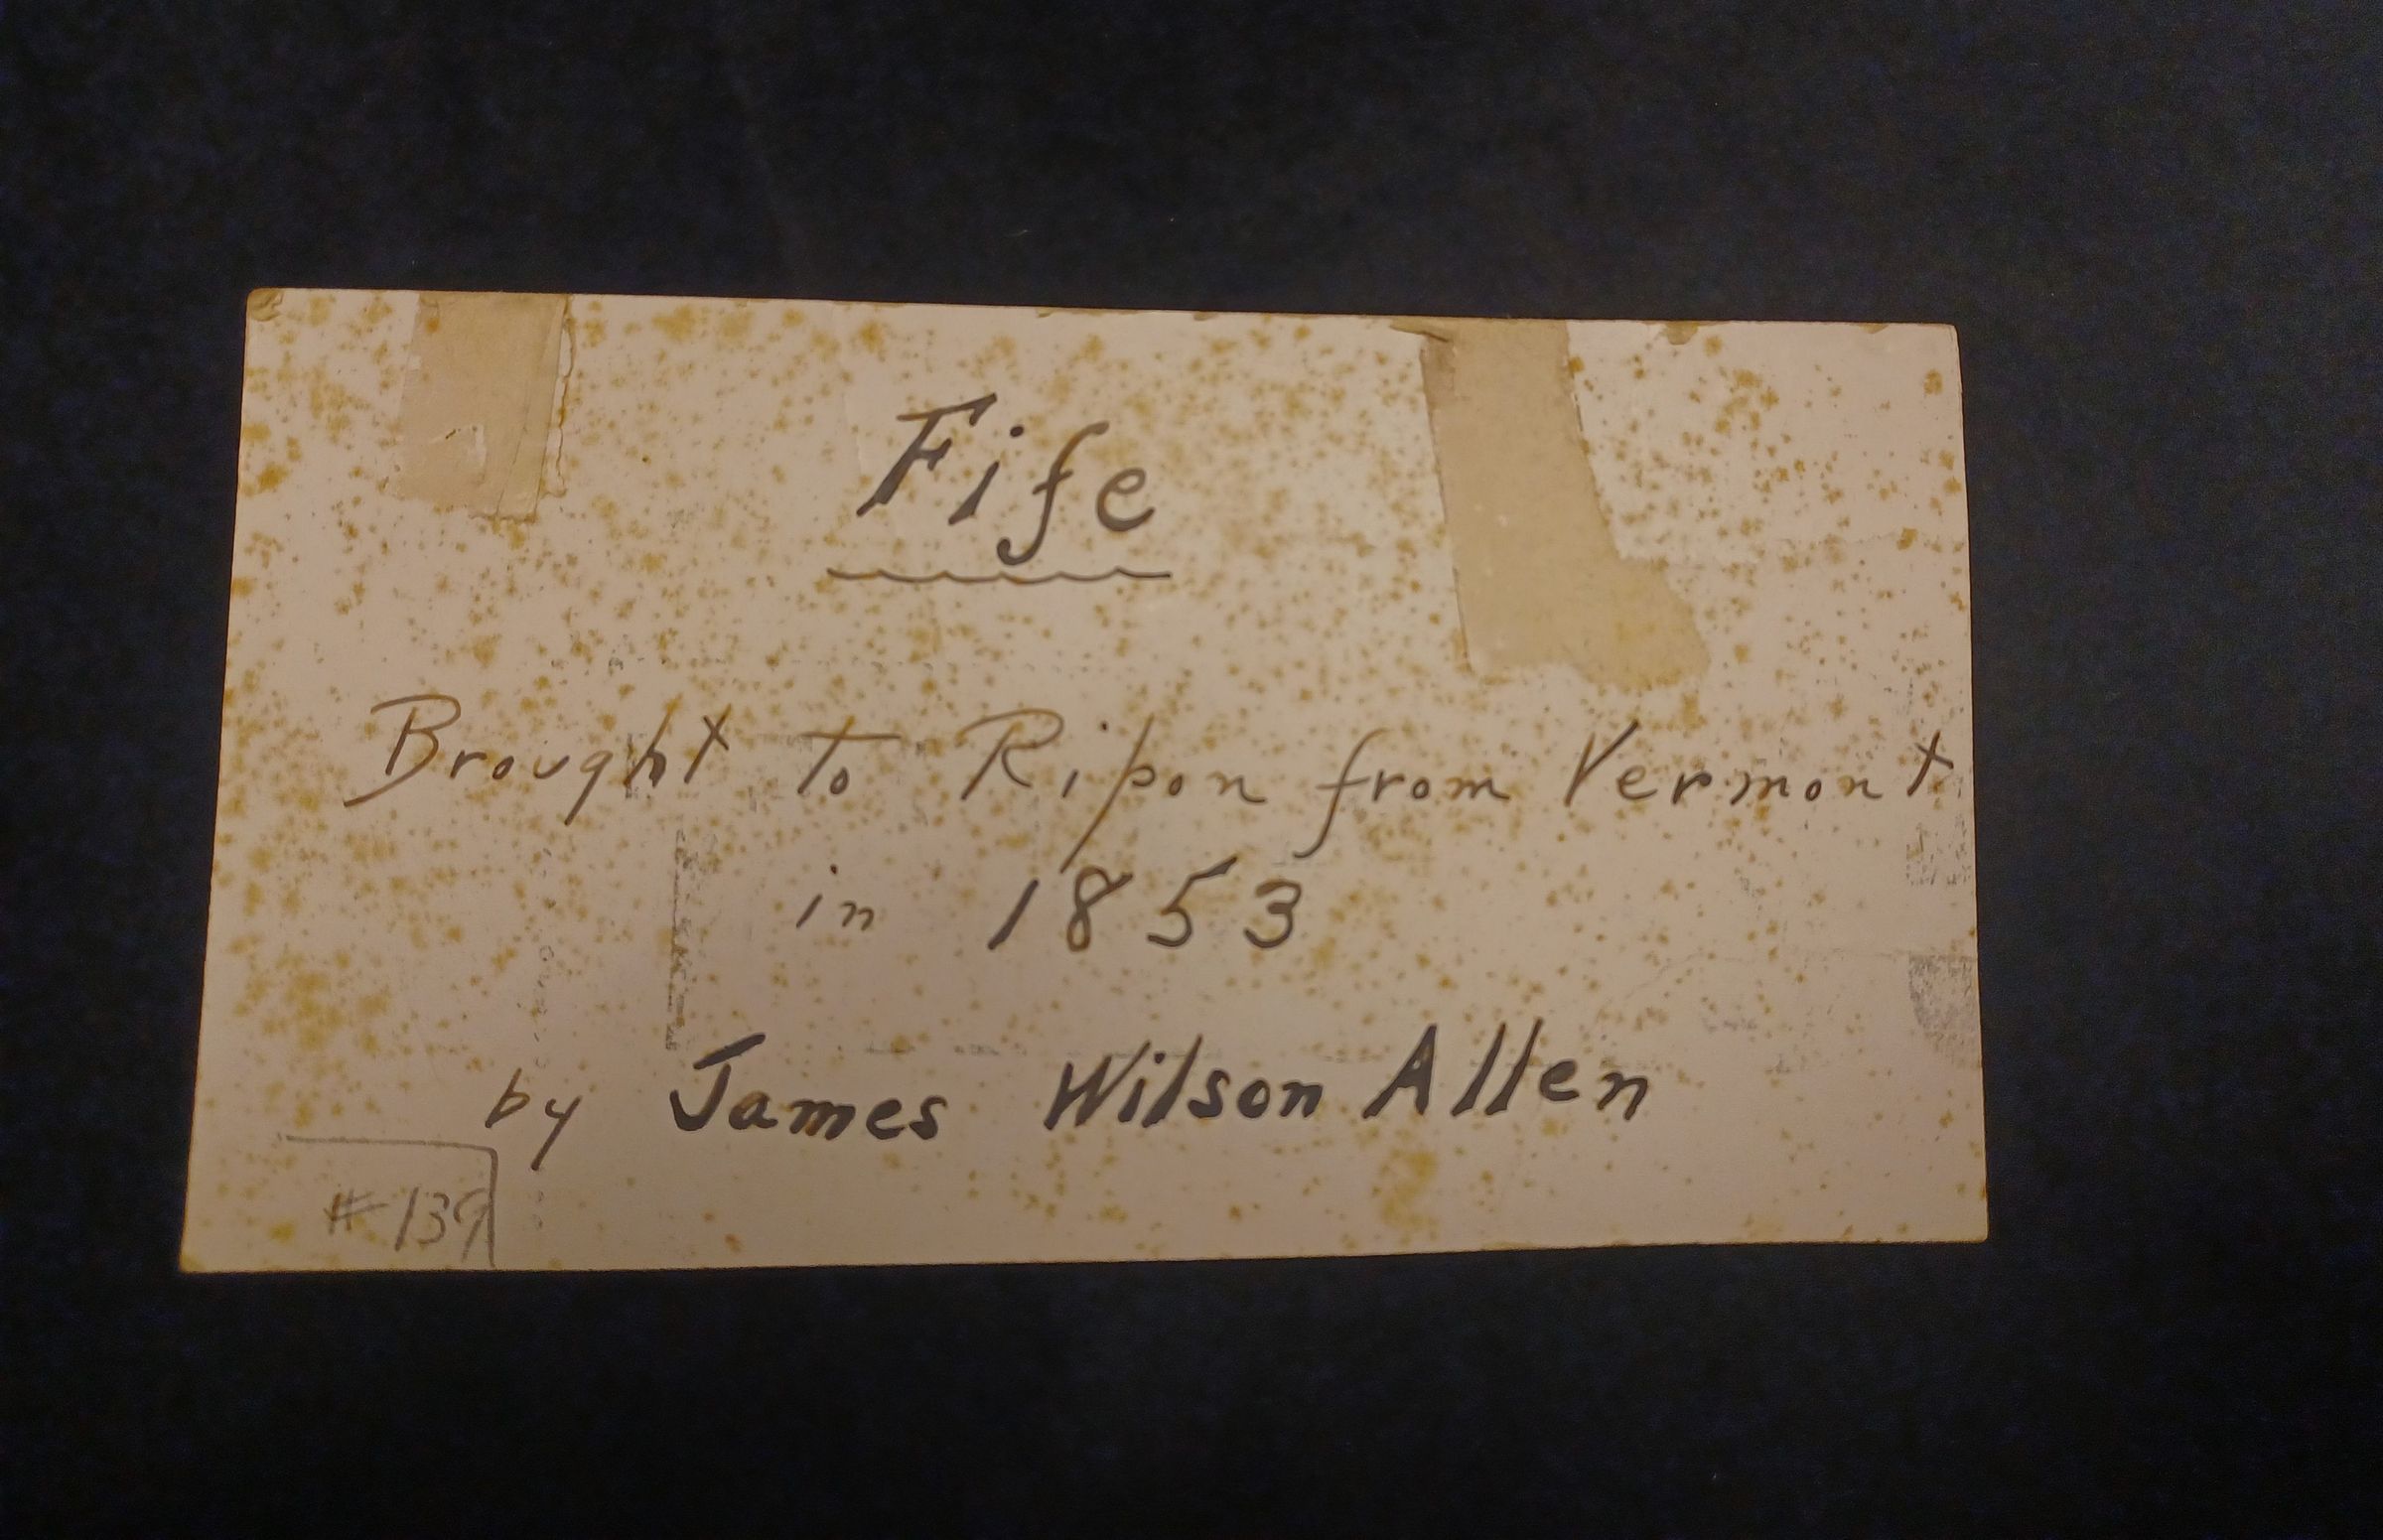 Fife
Brought to Ripon from Vermont
in 1853
by James Wilson Allen
#139